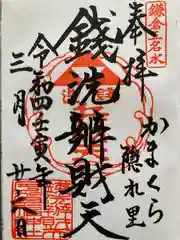 鎌倉五名水
奉拝
かまくら
隠れ里
銭洗辨財天
令和四壬寅年
三月
廿六日